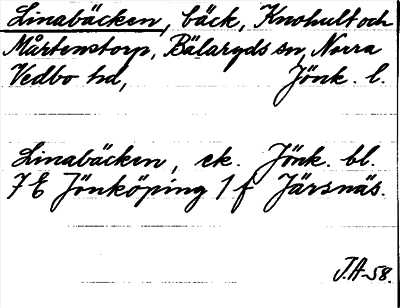 Linabäcken, bäck, Knohult och
Mårtenstorp, Bälaryds sn, Norra
Vedbo hd, Jönk. l.
Linabäcken, ek. Jönk. bl.
7E Jönköping 1f Järsnäs.
J.A-58.